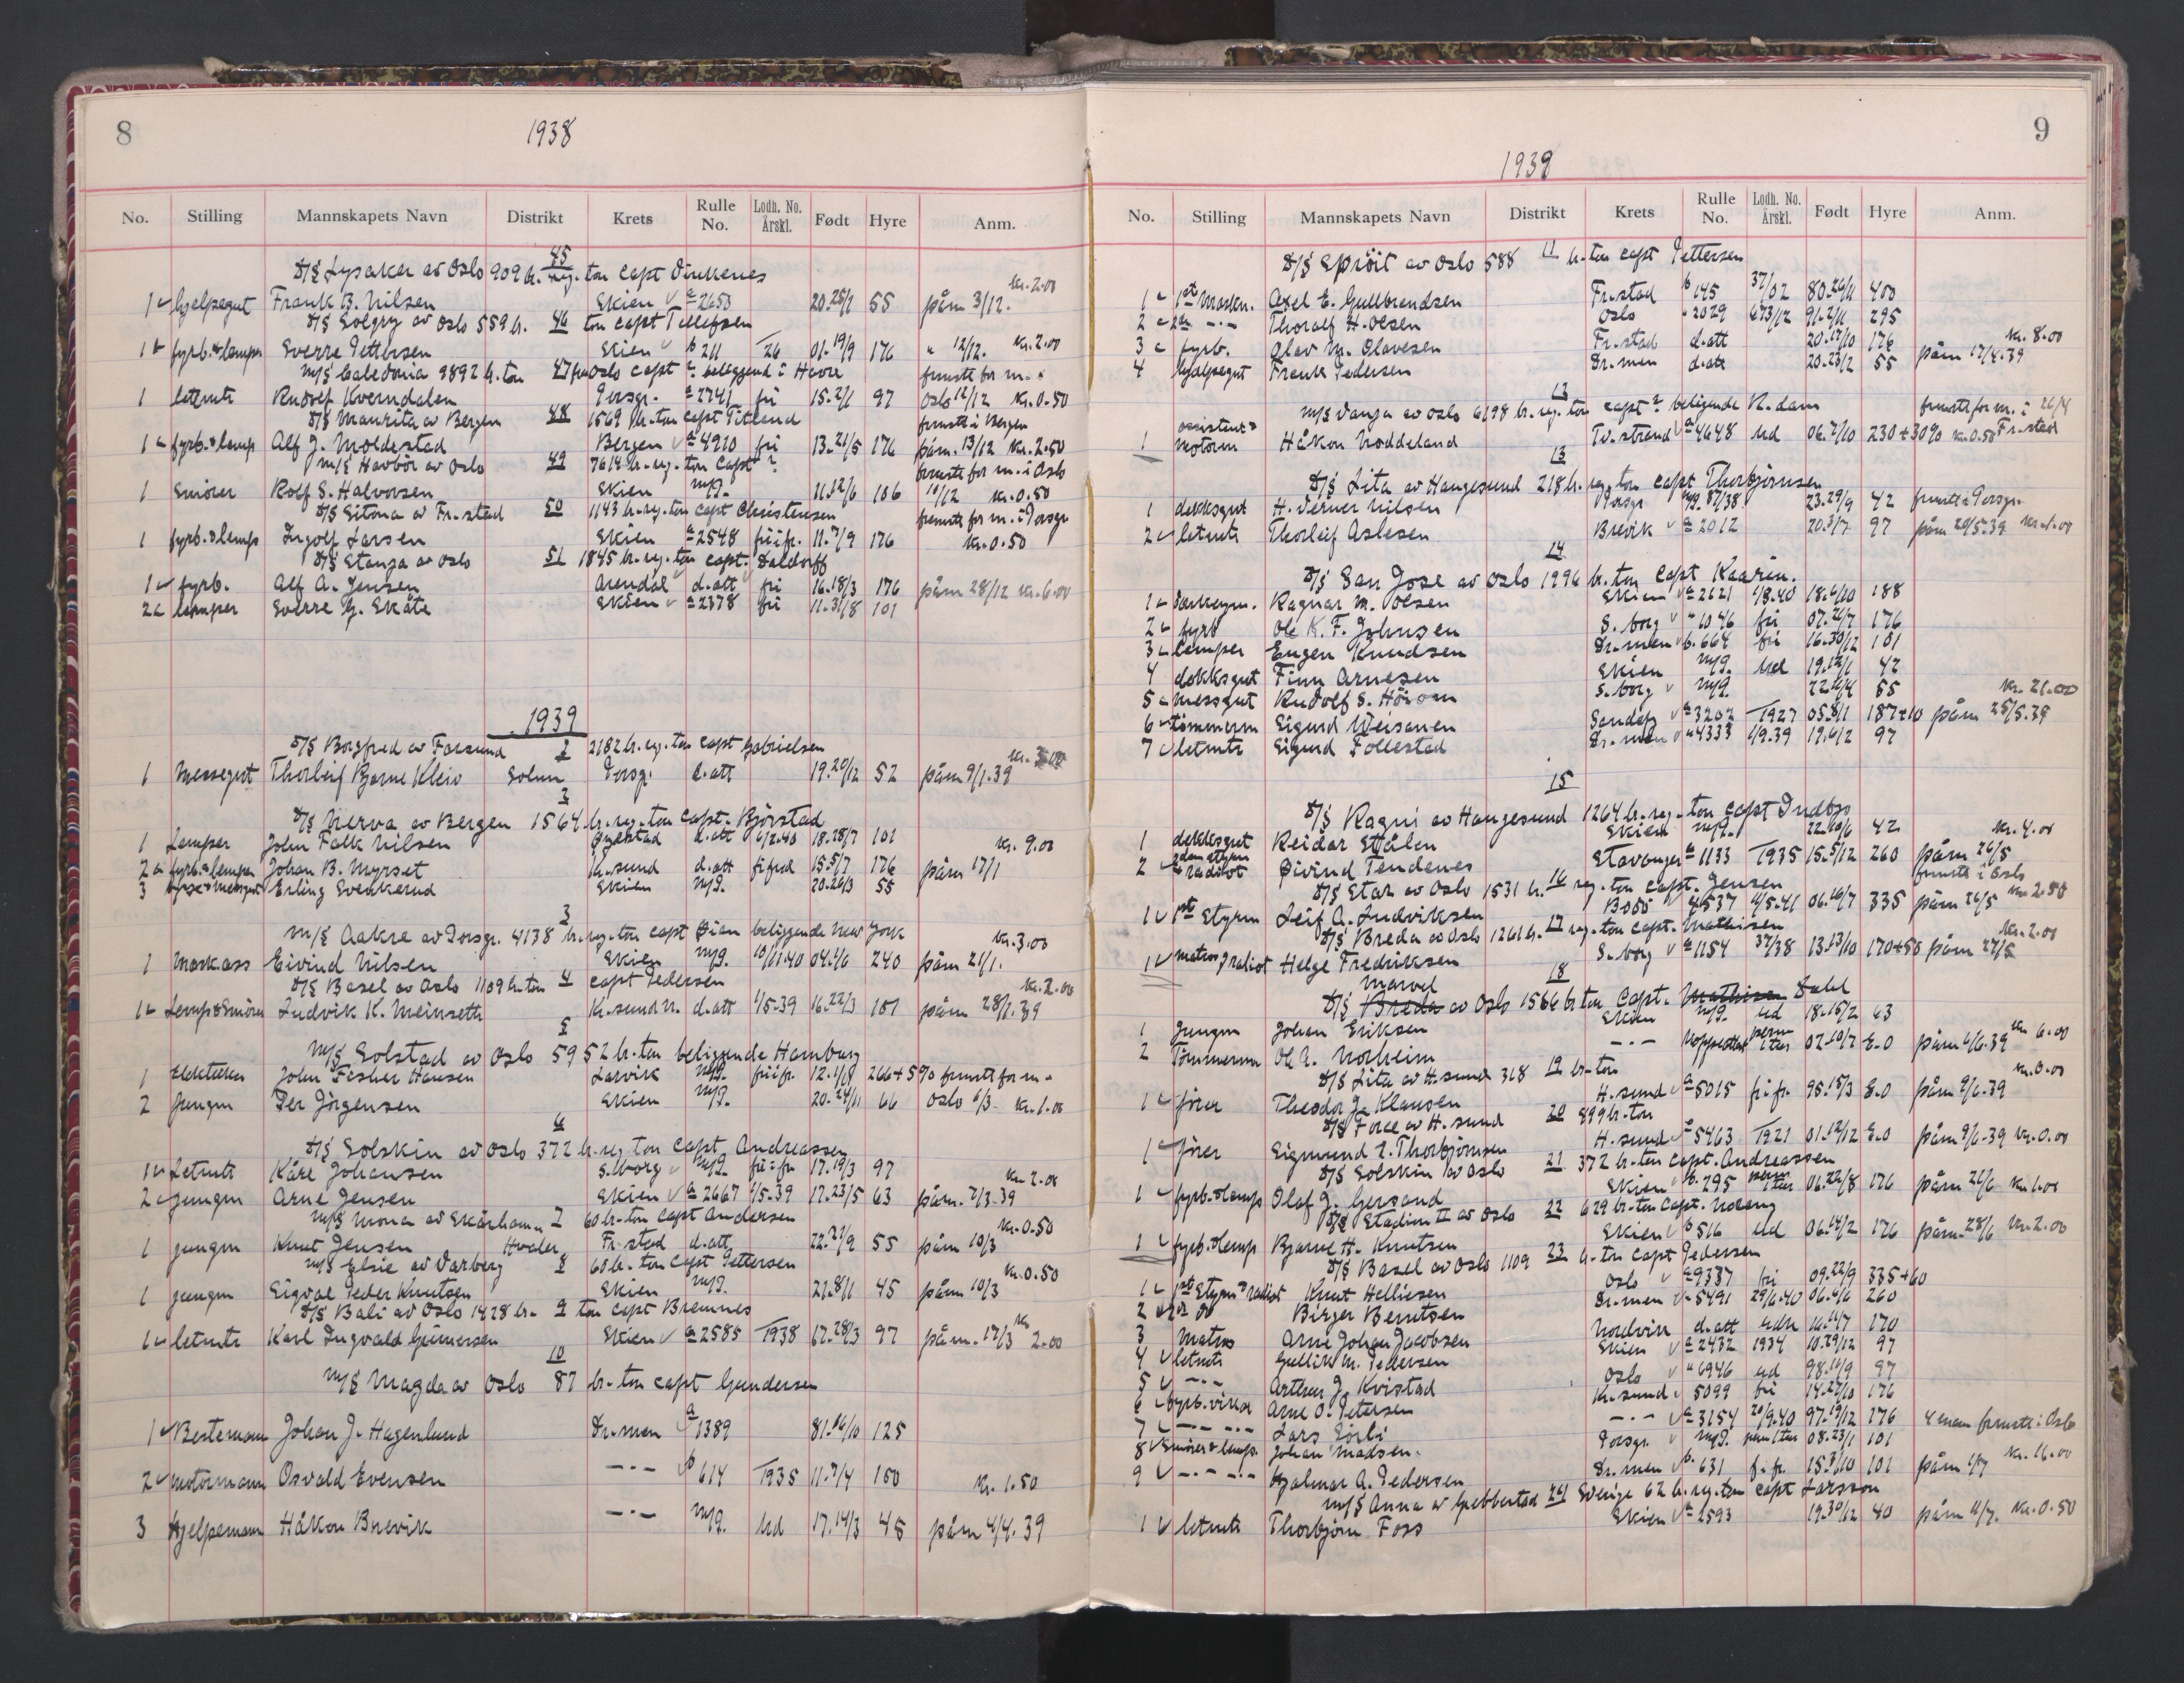 8
1938
No. Stilling Mannskapets Navn Distrikt Krets Rulle No. Lodh. No. Årskl. Født Hyre Anm.
45
D/S Lysaker av Oslo 909 br. reg. ton Capt Vinkenes
1 hjelpegut Frank B. Nilsen Skien a 2653 20.25/1 55 påm 3/12. kr. 2.00
D/S Solgry av Oslo 559 br. 46 ton Capt Tellefsen
1 fyrb. & lemper Sverre Pettersen Skien b 211 26 01.19/9 176 " 12/12. kr. 2.00
M/S Caledonia 9892 br. ton 47 Oslo Capt ? beliggend i Havre fremstt for m.
1 letmtr Rudolf Kverndalen Porsgr. a 2741 fri 15.2/1 97 Oslo 12/12 kr. 0.50
D/S Maurita av Bergen 48 1569 br. ton Capt Titland fremstt i Bergen
1 fyrb. & lemp Alf J. Moldestad Bergen a 4910 fri 13.21/5 176 påm. 13/12 kr. 2.50
M/S Havbör av Oslo 49 7614 br. reg. ton Capt ? fremstt for m. i Oslo
1 Smörer Rolf S. Halvorsen Skien mg. 11.12/6 106 10/12 kr. 0.50
D/S Sitona av Fr.stad 50 1143 br. reg. ton Capt Christensen fremstt for m. i Porsgr
1 fyrb. & lemp Ingolf Larsen Skien a 2548 fri i fr. 11.7/9 176 kr. 0.50
D/S Stanja av Oslo 51 1845 br. reg. ton Capt. Daldorff
1 fyrb. Alf A. Jensen Arendal d.att fri 16.18/3 176 påm 28/12 kr. 6.00
2 lemper Sverre G. Skåte Skien a 2378 fri 11.31/8 101
1939
D/S Borgfred av Farsund 1 2182 br. reg. ton Capt Gabrielsen
1 Messegut Thorleif Bjarne Kleiv Solum Porsgr. d.att 19.20/12 52 påm 9/1.39 kr. 3.00
2
D/S Nerva av Bergen 1564 br. reg. ton Capt. Bjørstad
1 Lemper John Falk Nilsen d.att 6/2.40 18.28/7 101 kr. 9.00
2 fyrb. & lemper Johan B. Myrset K.sund d.att 15.5/7 176 påm 17/1
3 Erling Svenkerud Skien mg. 20.26/3 55
3
M/S Aakre av Porsgr. 4138 br. reg. ton Capt beliggende New York
1 Mask.ass Eivind Nilsen Skien mg. 10/11.40 04.4/6 240 påm 21/1. kr. 3.00
D/S Basel av Oslo 1109 br. ton 4 Capt Pedersen
1 Lemp & Smörer Ludvik K. Meinseth K.sund N. d.att 1/5.39 16.22/3 101 påm 28/1.39 kr. 2.00
5
M/S Solstad av Oslo 5952 br. ton beliggende Hamburg
1 Elektriker John Fisher Hansen Larvik mg. fri i fr. 12.1/9 266+5% fremstt for m.
2 Jungm Per Jörgensen Skien mg. 20.24/11 66 Oslo 6/3. kr. 1.00
6
D/S Solskin av Oslo 372 br. reg ton Capt Andreassen
1 Letmtr Kåre Johansen S.borg mg. fri i fr 17.19/3 97 kr 2.00
2 jungm Arne Jensen Skien a 2667 1/5-39 17.23/5 63 påm. 7/3.39
M/S Mona av Skärhamn 7 60 br. ton Capt Andersen
1 jungm Knut Jensen Hvaler Fr.stad d.att 22.21/9 55 påm 10/3 kr. 0.50
M/S Elsie av Varberg 8 60 br. ton Capt Pettersen
1 jungm Sigval Peder Knutsen Skien mg. 21.8/1 45 påm 10/3 kr. 0.50
D/S Bali av Oslo 1428 br. 9 ton Capt Bremnes
1 letmtr Karl Ingvald Gunnersen Skien a 2585 1938 17.28/3 97 påm. 17/3 kr 2.00
10
M/S Magda av Oslo 87 br. ton Capt Gundersen
1 Bestemann Johan J. Hagenlund Dr.men a 1389 81.16/10 125
2 motormann Osvald Evensen —.— b 614 1935 11.7/4 160 kr. 1.50
3 Hjelpemann Håkon Brevik —.— mg. Ud 17.14/3 45 påm 4/4.39
9
1939
No. Stilling Mannskapets Navn Distrikt Krets Rulle No. Lodh. No. Årskl. Født Hyre Anm.
D/S Spröit av Oslo 588 11 br. ton Capt Pettersen
1 1st Maskn. Axel E. Gullbrandsen Fr.stad b 145 37/02 80.26/11 400
2 2n —.— Thoralf H. Olsen Oslo " 2029 673/12 91.2/11 295
3 fyrb. Olav M. Olavesen Fr.stad d.att 20.17/10 176 kr. 8.00
4 hjelpegut Frank Pedersen Dr.men d.att 20.23/2 55 påm 17/4.39
12
M/S Vanja av Oslo 6198 br. reg. ton Capt ? beligende R.dam fremstt for m. i 26/4
1 assistent & motorm Håkon Noddeland Tv.strand a 4648 Ud 06.7/10 230+30% kr. 0.50 Fr.stad
13
D/S Lita av Haugesund 218 br. reg. ton Capt Thorbjørnsen
1 dekksgut H. Verner Nilsen Porsgr mg. 87/38 23.29/9 42 fremstt i Porsgr.
2 letmtr Thorleif Aslesen Brevik a 2012 20.3/7 97 påm 20/5.39 kr. 1.00
14
D/S San Jose av Oslo 1996 br. ton Capt Kaarin.
1 Ragnar M. Olsen Skien a 2621 1/8.40 18.6/10 188
2 fyrb Ole K. F. Johnsen S.borg " 1046 fri 07.26/7 176
3 Lemper Eugen Knudsen Dr.men b. 664 fri 16.30/12 101
4 dekksgut Finn Arnesen Skien mg. Ud 19.12/1 42
5 Messgut Rudolf S. S.borg mg. 22.4/4 55 kr. 21.00
6 tömmerm Sigurd Weisanen Sandefj a 3202 1927 05.8/1 187+10 påm 25/5.39
7 letmtr Sigurd Follestad Dr.men " 4333 1/9.39 19.6/2 97
15
D/S Ragni av Haugesund 1264 br. reg. ton Capt Indbjo
1 dekksgut Reidar Stålen Skien mg. 22.10/6 42 kr. 4.00
2 2den styrm & radiot Øivind Tendenes Stavanger a 1133 1935 15.5/12 260 påm 26/5
D/S Star av Oslo 1531 br. 16 reg. ton Capt. Jensen fremstt i Oslo
1 1st Styrm Leif A. Ludviksen Bodö 4537 1/5.41 06.16/7 335 påm 26/5 kr 2.50
D/S Breda av Oslo 1261 br. 17 reg. ton Capt. Mathisen
1 matros & radiot Helge Fredriksen S.borg a 1154 37/38 13.13/10 170+50 påm 27/5 kr. 2.00
18
D/S Breda Marvel av Oslo 1566 br ton Capt. Mathisen Dahl
1 Jungm Johan Eriksen Skien mg. Ud 18.15/2 63
2 Tömmerm Ol A. Norheim —.— 02.10/7 E.O påm 6/6.39 kr 6.00
D/S Lita av H.sund 318 19 br. ton
1 förer Theodor J. Klausen H.sund a 5015 fri fr. 95.15/3 E.O påm 9/6.39 kr. 0.00
D/S Force av H.sund 20 899 br. ton
1 förer Sigmund L. Thorbjörnsen H.sund a 5463 1921 01.12/12 E.O påm 9/6-39 kr. 0.00
D/S Solskin av Oslo 21 372 br. ton Capt. Andreassen
1 fyrb. & lemp Olaf J. Gersand Skien b. 295 06.22/8 176 påm 21/6 kr. 1.00
D/S Stadion II av Oslo 22 629 br. ton Capt. Noreng
1 fyrb. & lemp Bjarne H. Knutsen Skien b 516 Ud 06.14/2 176 påm. 28/6 kr. 2.00
D/S Basel av Oslo 1109 23 br. ton Capt Pedersen
1 1st Styrm & radiot Knut Helliesen Oslo a 9337 fri 09.22/9 335+60
2 2n do Birger Berntsen Dr.men 5491 29/6.40 06.4/6 260
3 Matros Arne Johan Jacobsen Nordvik d.att 16.14/7 170
4 letmtr Gullik M. Pedersen Skien a 2432 1934 10.29/12 97
5 —.— Arthur J. Kvistad Oslo " 6946 ud 98.16/9 97
6 fyrb. Arne O. Petersen K.sund 5099 fri 14.27/10 176
7 —.— —.— Lars Sörbö —.— a 3154 20/9.40 97.19/12 176 4 mann fremstt i Oslo
8 Smörer & lemp. Johan Madsen. Porsgr mg. 08.23/1 101
9 —.— —.— Hjalmar A. Pedersen Dr.men b. 631 fri fr. 15.3/10 101 påm 1/7 kr. 16.00
M/S Anna av Grebbestad 24 Sverige 62 br. reg. ton Capt Larsson
1 letmtr Thorbjörn Foss Skien a 2593 19.30/12 40 påm 11/7. kr. 0.50